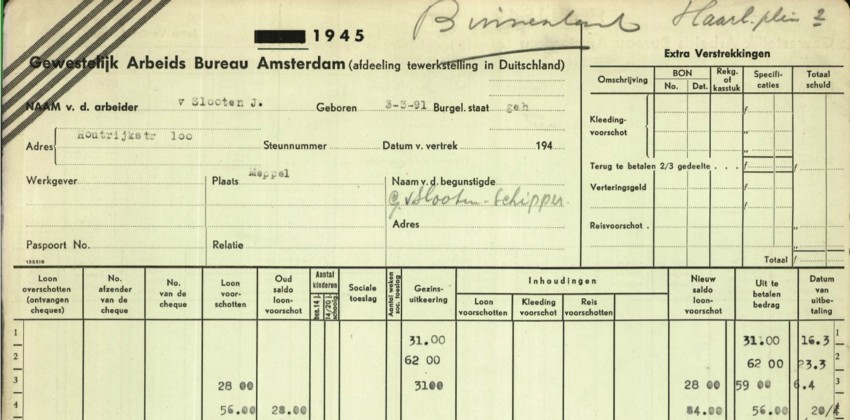 Binnenland Haarl. plein 2
1945
Gewestelijk Arbeids Bureau Amsterdam (afdeeling tewerkstelling in Duitschland)
NAAM v. d. arbeider v Slooten J. Geboren 3-3-91 Burgel. staat geh
Adres Houtrijkstr 100 Steunnummer Datum v. vertrek 194
Werkgever Plaats Meppel Naam v. d. begunstigde
G. v Slooten-Schipper.
Adres
Paspoort No. Relatie
Extra Verstrekkingen
Omschrijving BON No. Dat. Rekg. of kasstuk Specificaties Totaal schuld
Kledingvoorschot
Terug te betalen 2/3 gedeelte . . . f f
Verteringsgeld f
Reisvoorschot .
Totaal f
Loon overschotten (ontvangen cheques) No. afzender van de cheque No. van de cheque Loon voorschotten Oud saldo loonvoorschot Aantal kinderen ben. 14 j. 14/20 j. schoolg. Sociale toeslag Aantal weken soc. toeslag Gezinsuitkeering Inhoudingen Loon voorschotten Kleeding voorschot Reis voorschotten Nieuw saldo loonvoorschot Uit te betalen bedrag Datum van uitbetaling
1 31.00 31.00 16.3 1
2 62 00 62 00 23.3 2
3 28 00 3100 28 00 59 00 6.4 3
4 56.00 28.00 84.00 56.00 20/4